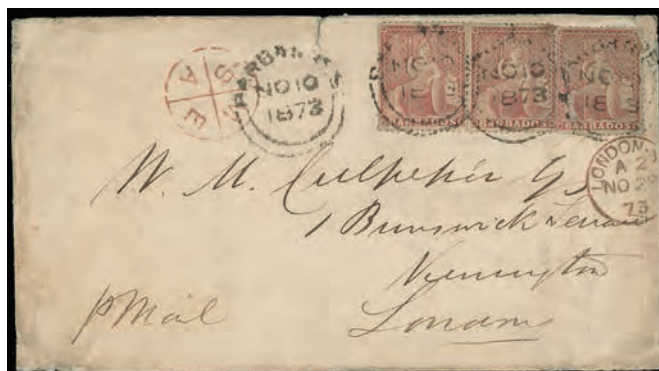 BARBADOS
NO 10
1873
NO 10
NO 10
1873
NO
BARBADOS
BARBADOS
BARBADOS
LONDON
A 2
NO 2
73
W. M. Culpeper Esq
1 Brunswick Terrace
Kennington
London
p Mail